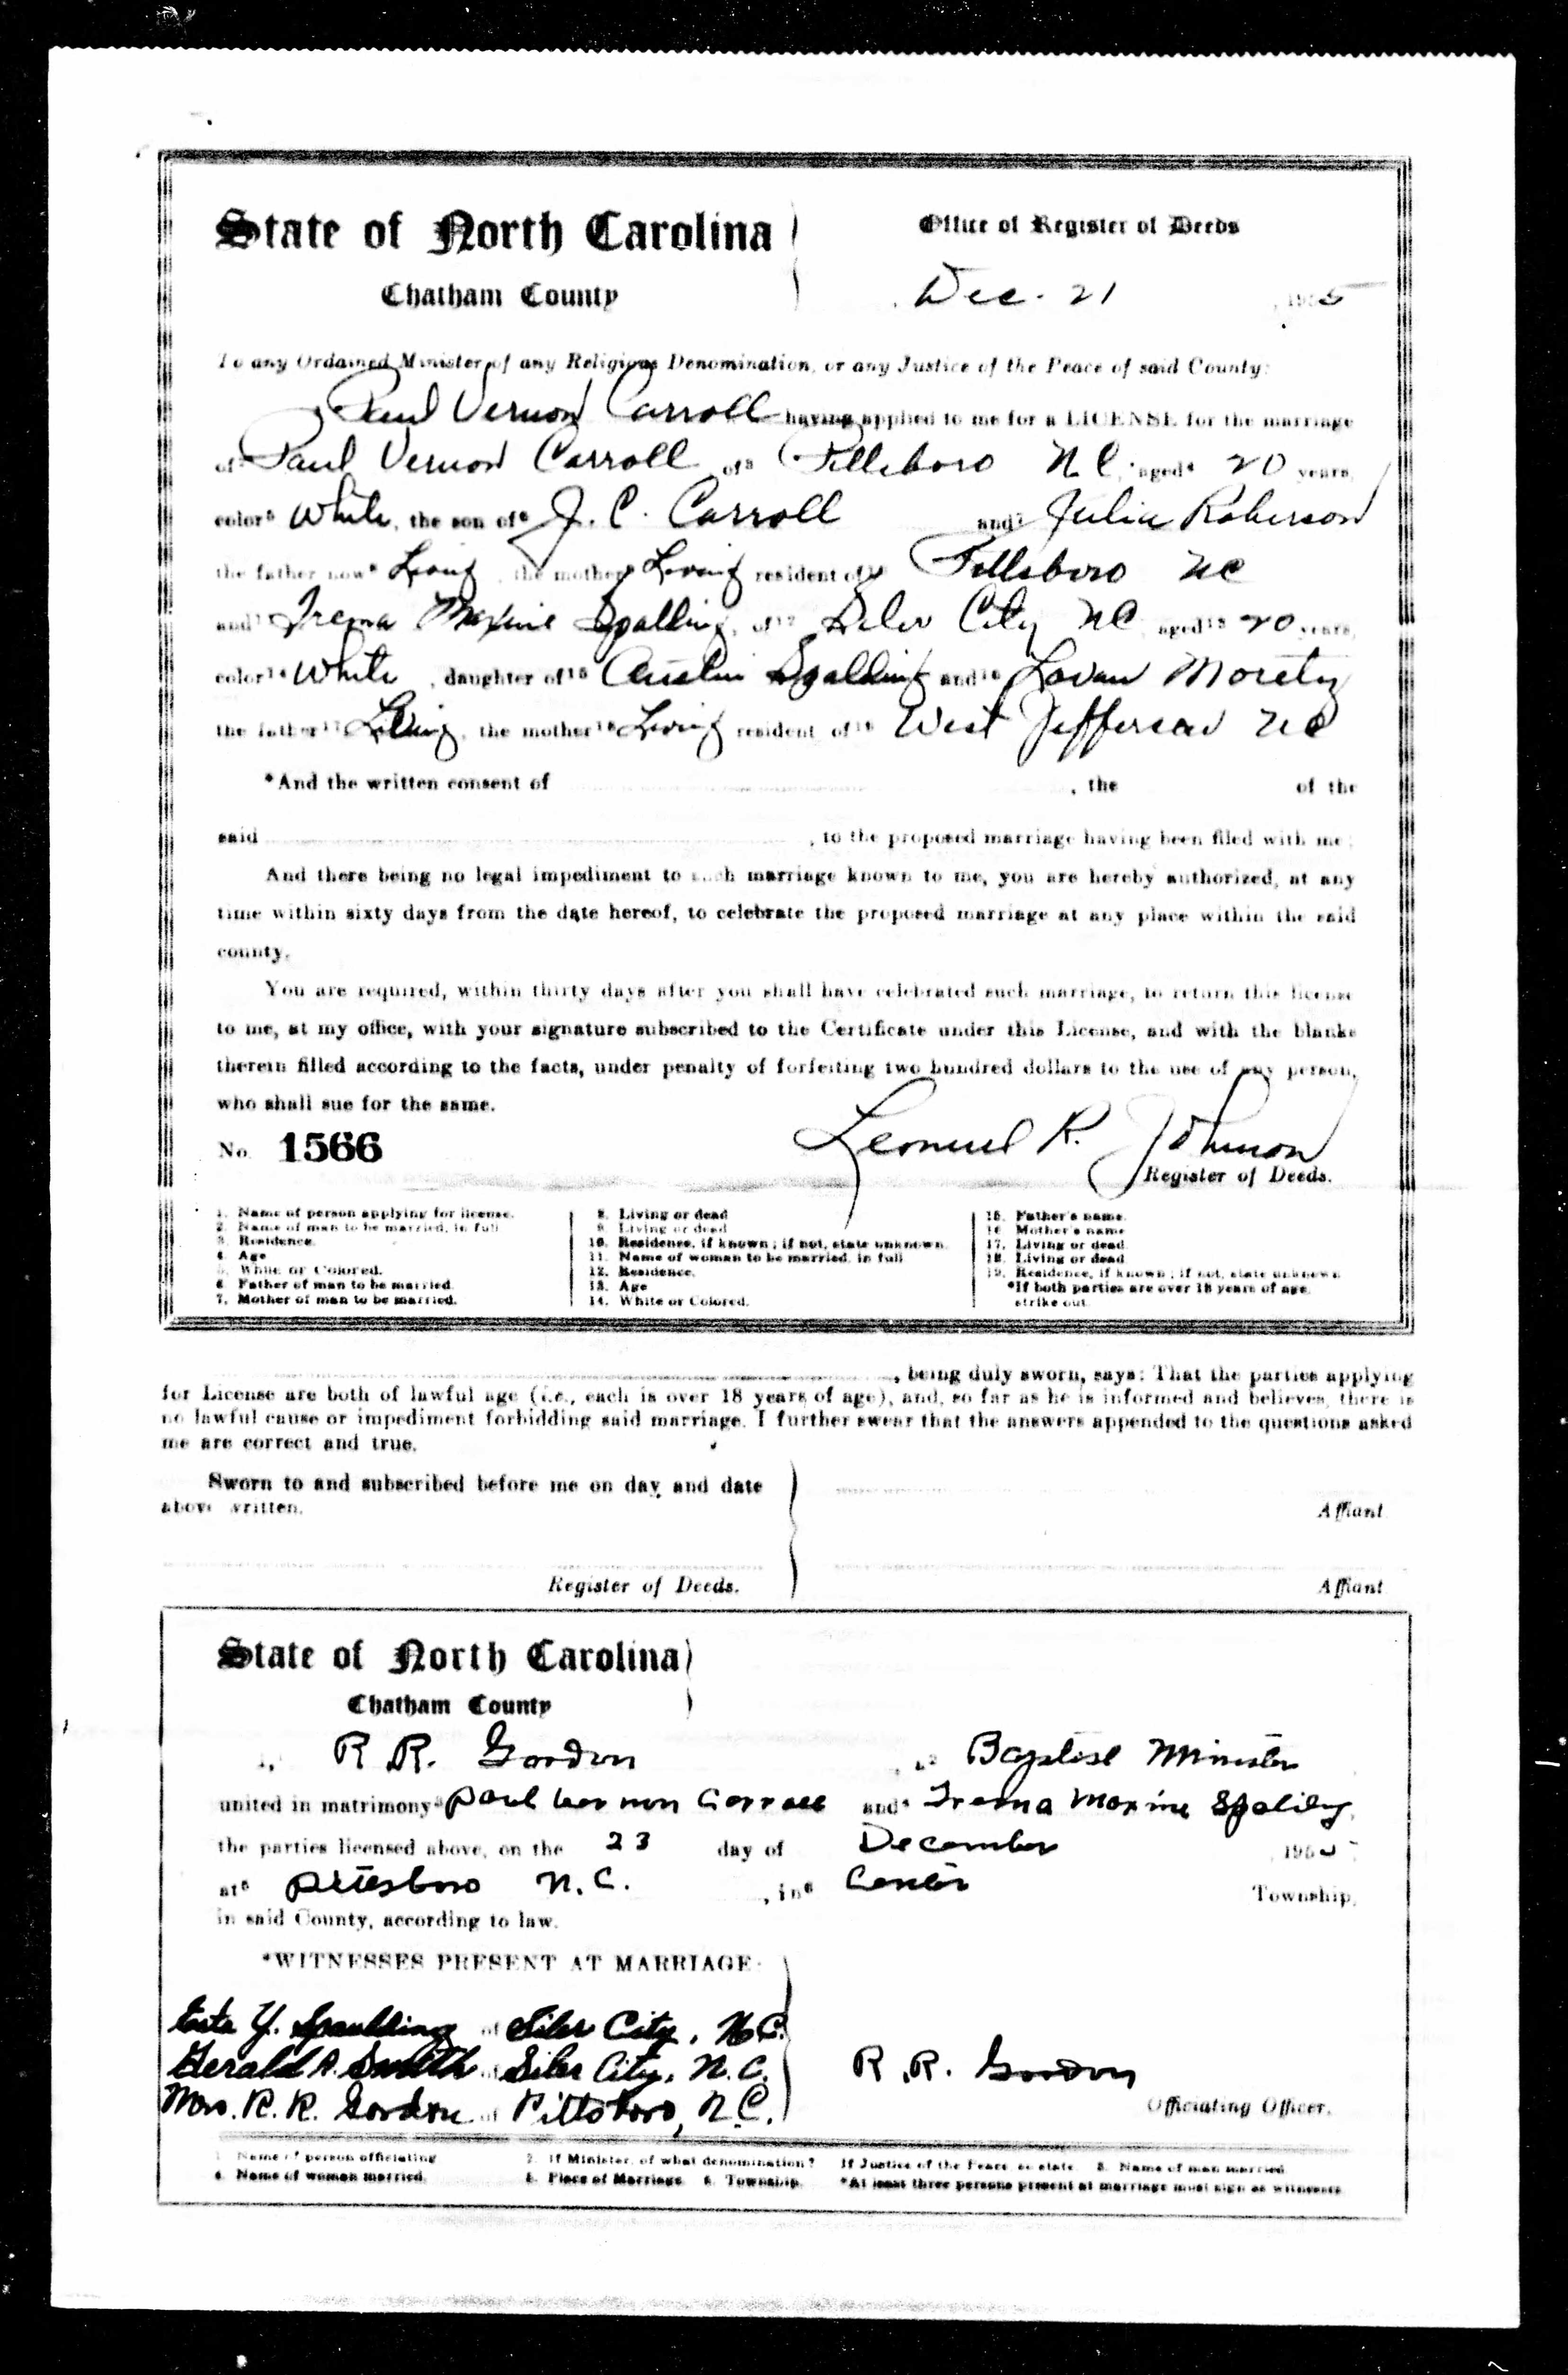 State of North Carolina
Office of Register of Deeds
Chatham County
Dec. 21, 195
To any Ordained Minister of any Religious Denomination, or any Justice of the Peace of said County:
Paul Vernon Carroll having applied to me for a LICENSE for the marriage
of Paul Vernon Carroll of Pittsboro N C aged 20 years,
color White, the son of J. C. Carroll and Julia Roberson
the father now Living, the mother Living resident of Pittsboro NC
and Maxine Spalling, of Siler City NC aged 20 years,
color White, daughter of Austin Spalding and Moretz
the father Living, the mother Living resident of West Jefferson NC
*And the written consent of , the of the
said , to the proposed marriage having been filed with me;
And there being no legal impediment to such marriage known to me, you are hereby authorized, at any
time within sixty days from the date hereof, to celebrate the proposed marriage at any place within the said
county.
You are required, within thirty days after you shall have celebrated such marriage, to return this license
to me, at my office, with your signature subscribed to the Certificate under this License, and with the blanks
therein filled according to the facts, under penalty of forfeiting two hundred dollars to the use of any person,
who shall sue for the same.
No. 1566
Lemuel R. Johnson
Register of Deeds.
1. Name of person applying for license.
2. Name of man to be married, in full
3. Residence.
4. Age
5. White or Colored.
6. Father of man to be married.
7. Mother of man to be married.
8. Living or dead
9. Living or dead
10. Residence, if known; if not, state unknown.
11. Name of woman to be married, in full
12. Residence.
13. Age
14. White or Colored.
15. Father's name.
16. Mother's name
17. Living or dead.
18. Living or dead
19. Residence, if known; if not, state unknown
*If both parties are over 18 years of age,
strike out.
, being duly sworn, says: That the parties applying
for License are both of lawful age (i.e., each is over 18 years of age), and, so far as he is informed and believes, there is
no lawful cause or impediment forbidding said marriage. I further swear that the answers appended to the questions asked
me are correct and true.
Sworn to and subscribed before me on day and date
above written.
Affiant
Register of Deeds.
Affiant
State of North Carolina
Chatham County
I, R. R. Gordon, a Baptist Minister
united in matrimony Paul Vernon Carroll and Maxine Spalding,
the parties licensed above, on the 23 day of December 195
at Pittsboro N.C., in Center Township,
in said County, according to law.
*WITNESSES PRESENT AT MARRIAGE:
Y. Spaulding of Siler City, N.C.
Gerald A. Smith of Siler City, N.C.
Mrs. R. R. Gordon of Pittsboro, N.C.
R. R. Gordon
Officiating Officer.
1. Name of person officiating 2. If Minister, of what denomination? If Justice of the Peace, so state. 3. Name of man married
4. Name of woman married. 5. Place of Marriage 6. Township. *At least three persons present at marriage must sign as witnesses